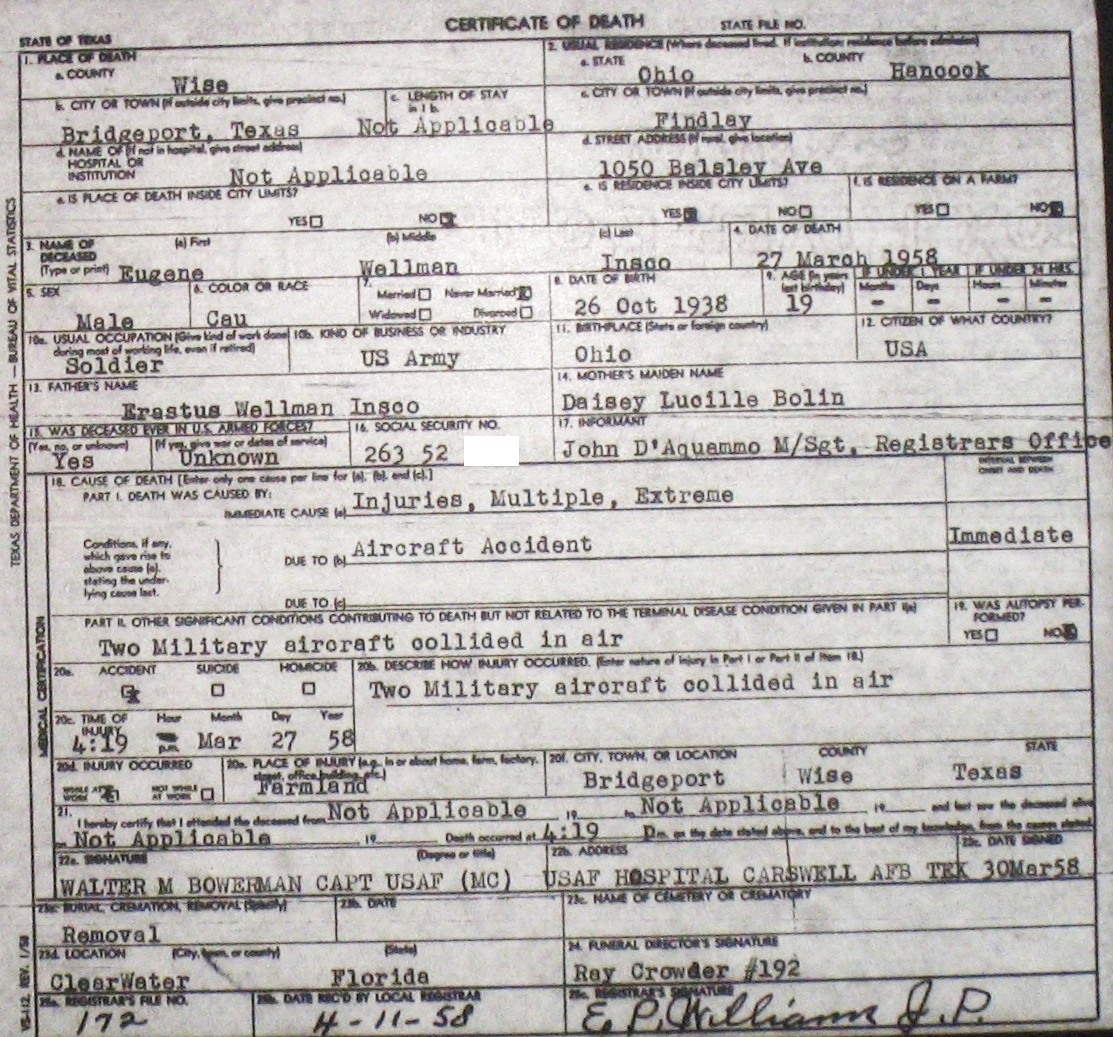 CERTIFICATE OF DEATH
STATE FILE NO.
STATE OF TEXAS
1. PLACE OF DEATH
a. COUNTY
Wise
2. USUAL RESIDENCE (Where deceased lived. If institution: residence before admission)
a. STATE
Ohio
b. COUNTY
Hancock
b. CITY OR TOWN (If outside city limits, give precinct no.)
Bridgeport, Texas
c. LENGTH OF STAY
in 1 b.
Not Applicable
c. CITY OR TOWN (If outside city limits, give precinct no.)
Findlay
d. NAME OF (If not in hospital, give street address)
HOSPITAL OR
INSTITUTION
Not Applicable
d. STREET ADDRESS (If rural, give location)
1050 Balsley Ave
e. IS PLACE OF DEATH INSIDE CITY LIMITS?
YES NO
e. IS RESIDENCE INSIDE CITY LIMITS?
YES NO
f. IS RESIDENCE ON A FARM?
YES NO
3. NAME OF
DECEASED
(Type or print)
(a) First
Eugene
(b) Middle
Wellman
(c) Last
Insco
4. DATE OF DEATH
27 March 1958
5. SEX
Male
6. COLOR OR RACE
Cau
7.
Married Never Married
Widowed Divorced
8. DATE OF BIRTH
26 Oct 1938
9. AGE (In years
last birthday)
19
IF UNDER 1 YEAR
Months Days
- -
IF UNDER 24 HRS.
Hours Minutes
- -
10a. USUAL OCCUPATION (Give kind of work done
during most of working life, even if retired)
Soldier
10b. KIND OF BUSINESS OR INDUSTRY
US Army
11. BIRTHPLACE (State or foreign country)
Ohio
12. CITIZEN OF WHAT COUNTRY?
USA
13. FATHER'S NAME
Erastus Wellman Insco
14. MOTHER'S MAIDEN NAME
Daisey Lucille Bolin
15. WAS DECEASED EVER IN U.S. ARMED FORCES?
(Yes, no, or unknown)
Yes
(If yes, give war or dates of service)
Unknown
16. SOCIAL SECURITY NO.
263 52
17. INFORMANT
John D'Aquammo M/Sgt, Registrars Office
18. CAUSE OF DEATH [Enter only one cause per line for (a), (b), and (c).]
PART I. DEATH WAS CAUSED BY:
IMMEDIATE CAUSE (a) Injuries, Multiple, Extreme
INTERVAL BETWEEN
ONSET AND DEATH
Immediate
Conditions, if any,
which gave rise to
above cause (a),
stating the under-
lying cause last.
DUE TO (b) Aircraft Accident
DUE TO (c)
PART II. OTHER SIGNIFICANT CONDITIONS CONTRIBUTING TO DEATH BUT NOT RELATED TO THE TERMINAL DISEASE CONDITION GIVEN IN PART I(a)
Two Military aircraft collided in air
19. WAS AUTOPSY PER-
FORMED?
YES NO
20a.
ACCIDENT SUICIDE HOMICIDE
20b. DESCRIBE HOW INJURY OCCURRED. (Enter nature of injury in Part I or Part II of item 18.)
Two Military aircraft collided in air
20c. TIME OF
INJURY
Hour Month Day Year
4:19 p.m. Mar 27 58
20d. INJURY OCCURRED
WHILE AT
WORK
NOT WHILE
AT WORK
20e. PLACE OF INJURY (e.g., in or about home, farm, factory,
street, office building, etc.)
Farmland
20f. CITY, TOWN, OR LOCATION
Bridgeport
COUNTY
Wise
STATE
Texas
21.
I hereby certify that I attended the deceased from Not Applicable 19 to Not Applicable 19 and last saw the deceased alive
on Not Applicable 19 Death occurred at 4:19 p.m. on the date stated above, and to the best of my knowledge, from the causes stated.
22a. SIGNATURE
(Degree or title)
WALTER M BOWERMAN CAPT USAF (MC)
22b. ADDRESS
USAF HOSPITAL CARSWELL AFB TEX
22c. DATE SIGNED
30Mar58
23a. BURIAL, CREMATION, REMOVAL (Specify)
Removal
23b. DATE
23c. NAME OF CEMETERY OR CREMATORY
23d. LOCATION
(City, town, or county)
ClearWater
(State)
Florida
24. FUNERAL DIRECTOR'S SIGNATURE
Ray Crowder #192
25a. REGISTRAR'S FILE NO.
172
25b. DATE REC'D BY LOCAL REGISTRAR
4-11-58
25c. REGISTRAR'S SIGNATURE
E. P. Williams J.P.
TEXAS DEPARTMENT OF HEALTH — BUREAU OF VITAL STATISTICS
MEDICAL CERTIFICATION
VS-112 REV. 1/58